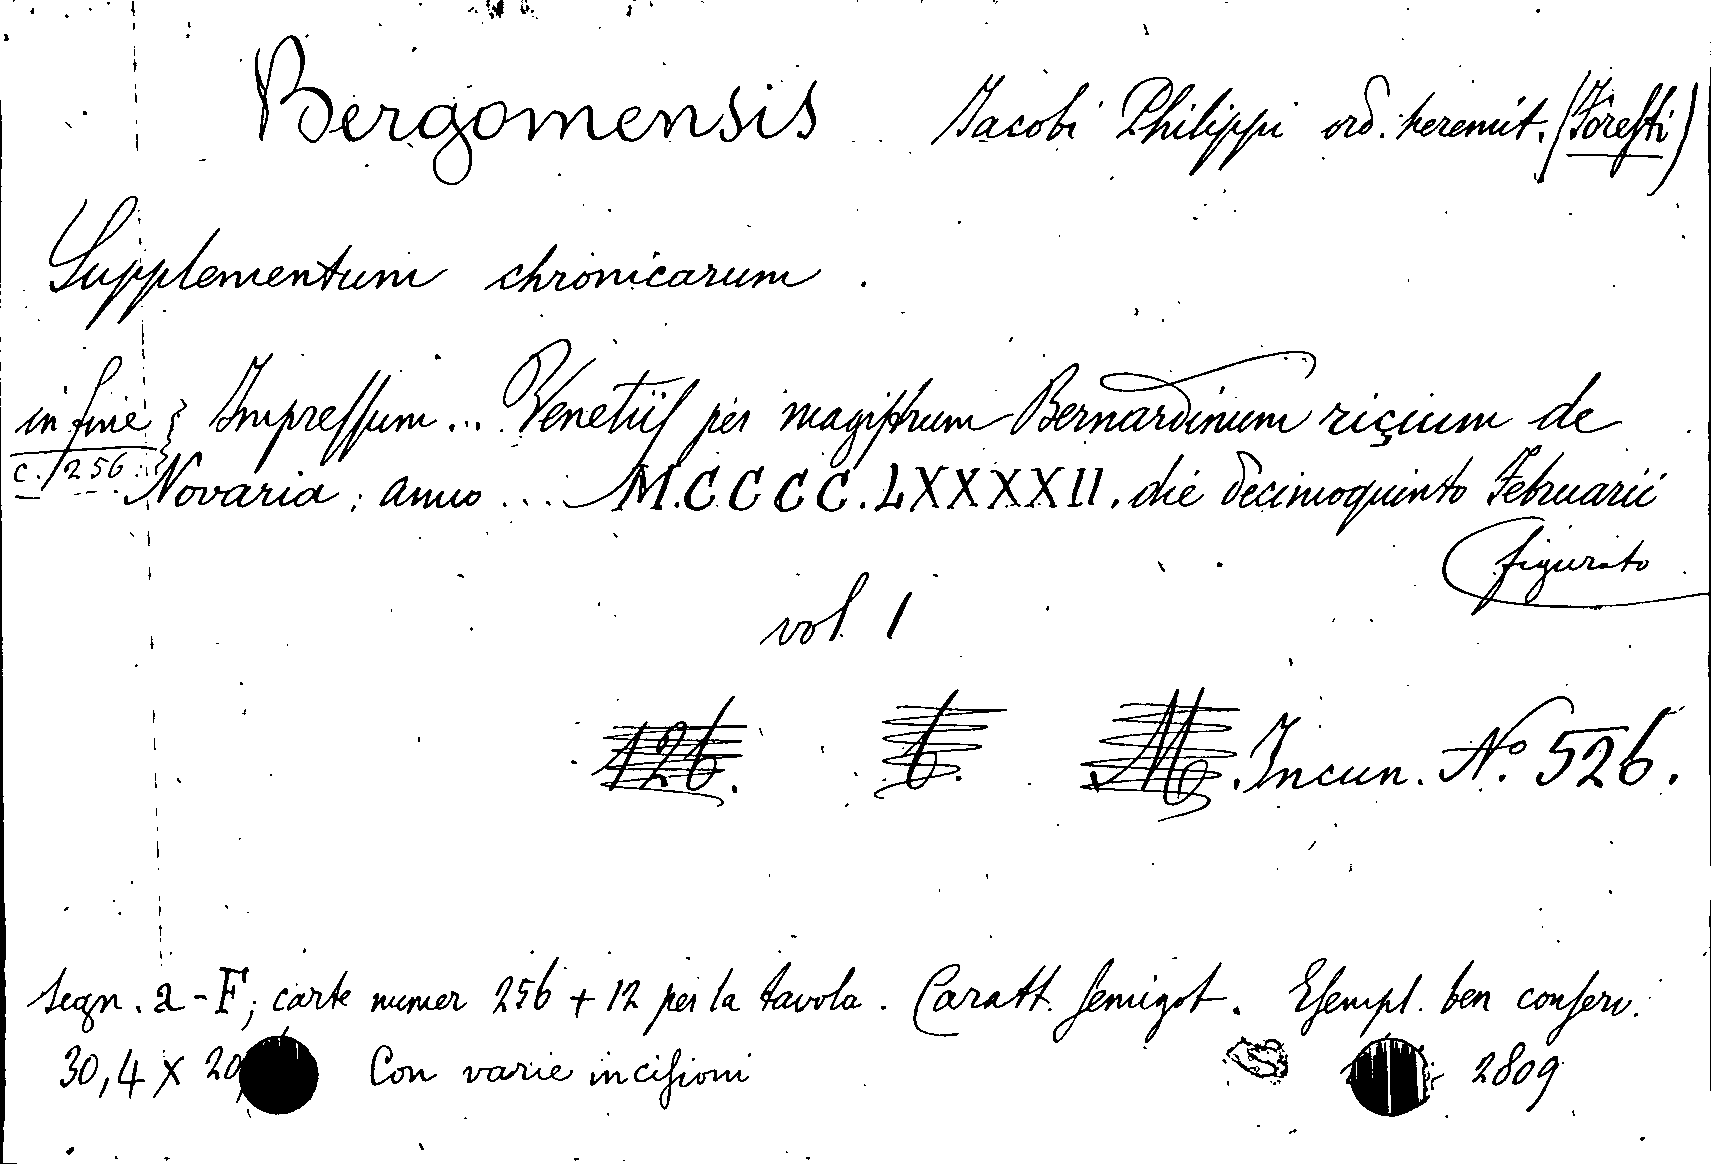 Bergomensis Jacobi Philippi ord. heremit. (Foresti)
Supplementum chronicarum.
in fine
c. 256
Impressum... Venetiis per magistrum Bernardinum riçium de
Novaria: anno... M.CCCC.LXXXXII. die decimoquinto Februarii
figurato
vol. 1
126. 6. Incun. Nº 526.
segn. a-F; carte numer 256 + 12 per la tavola. Caratt. semigot. Esempl. ben conserv.
30,4 X 20, Con varie incisioni 2809